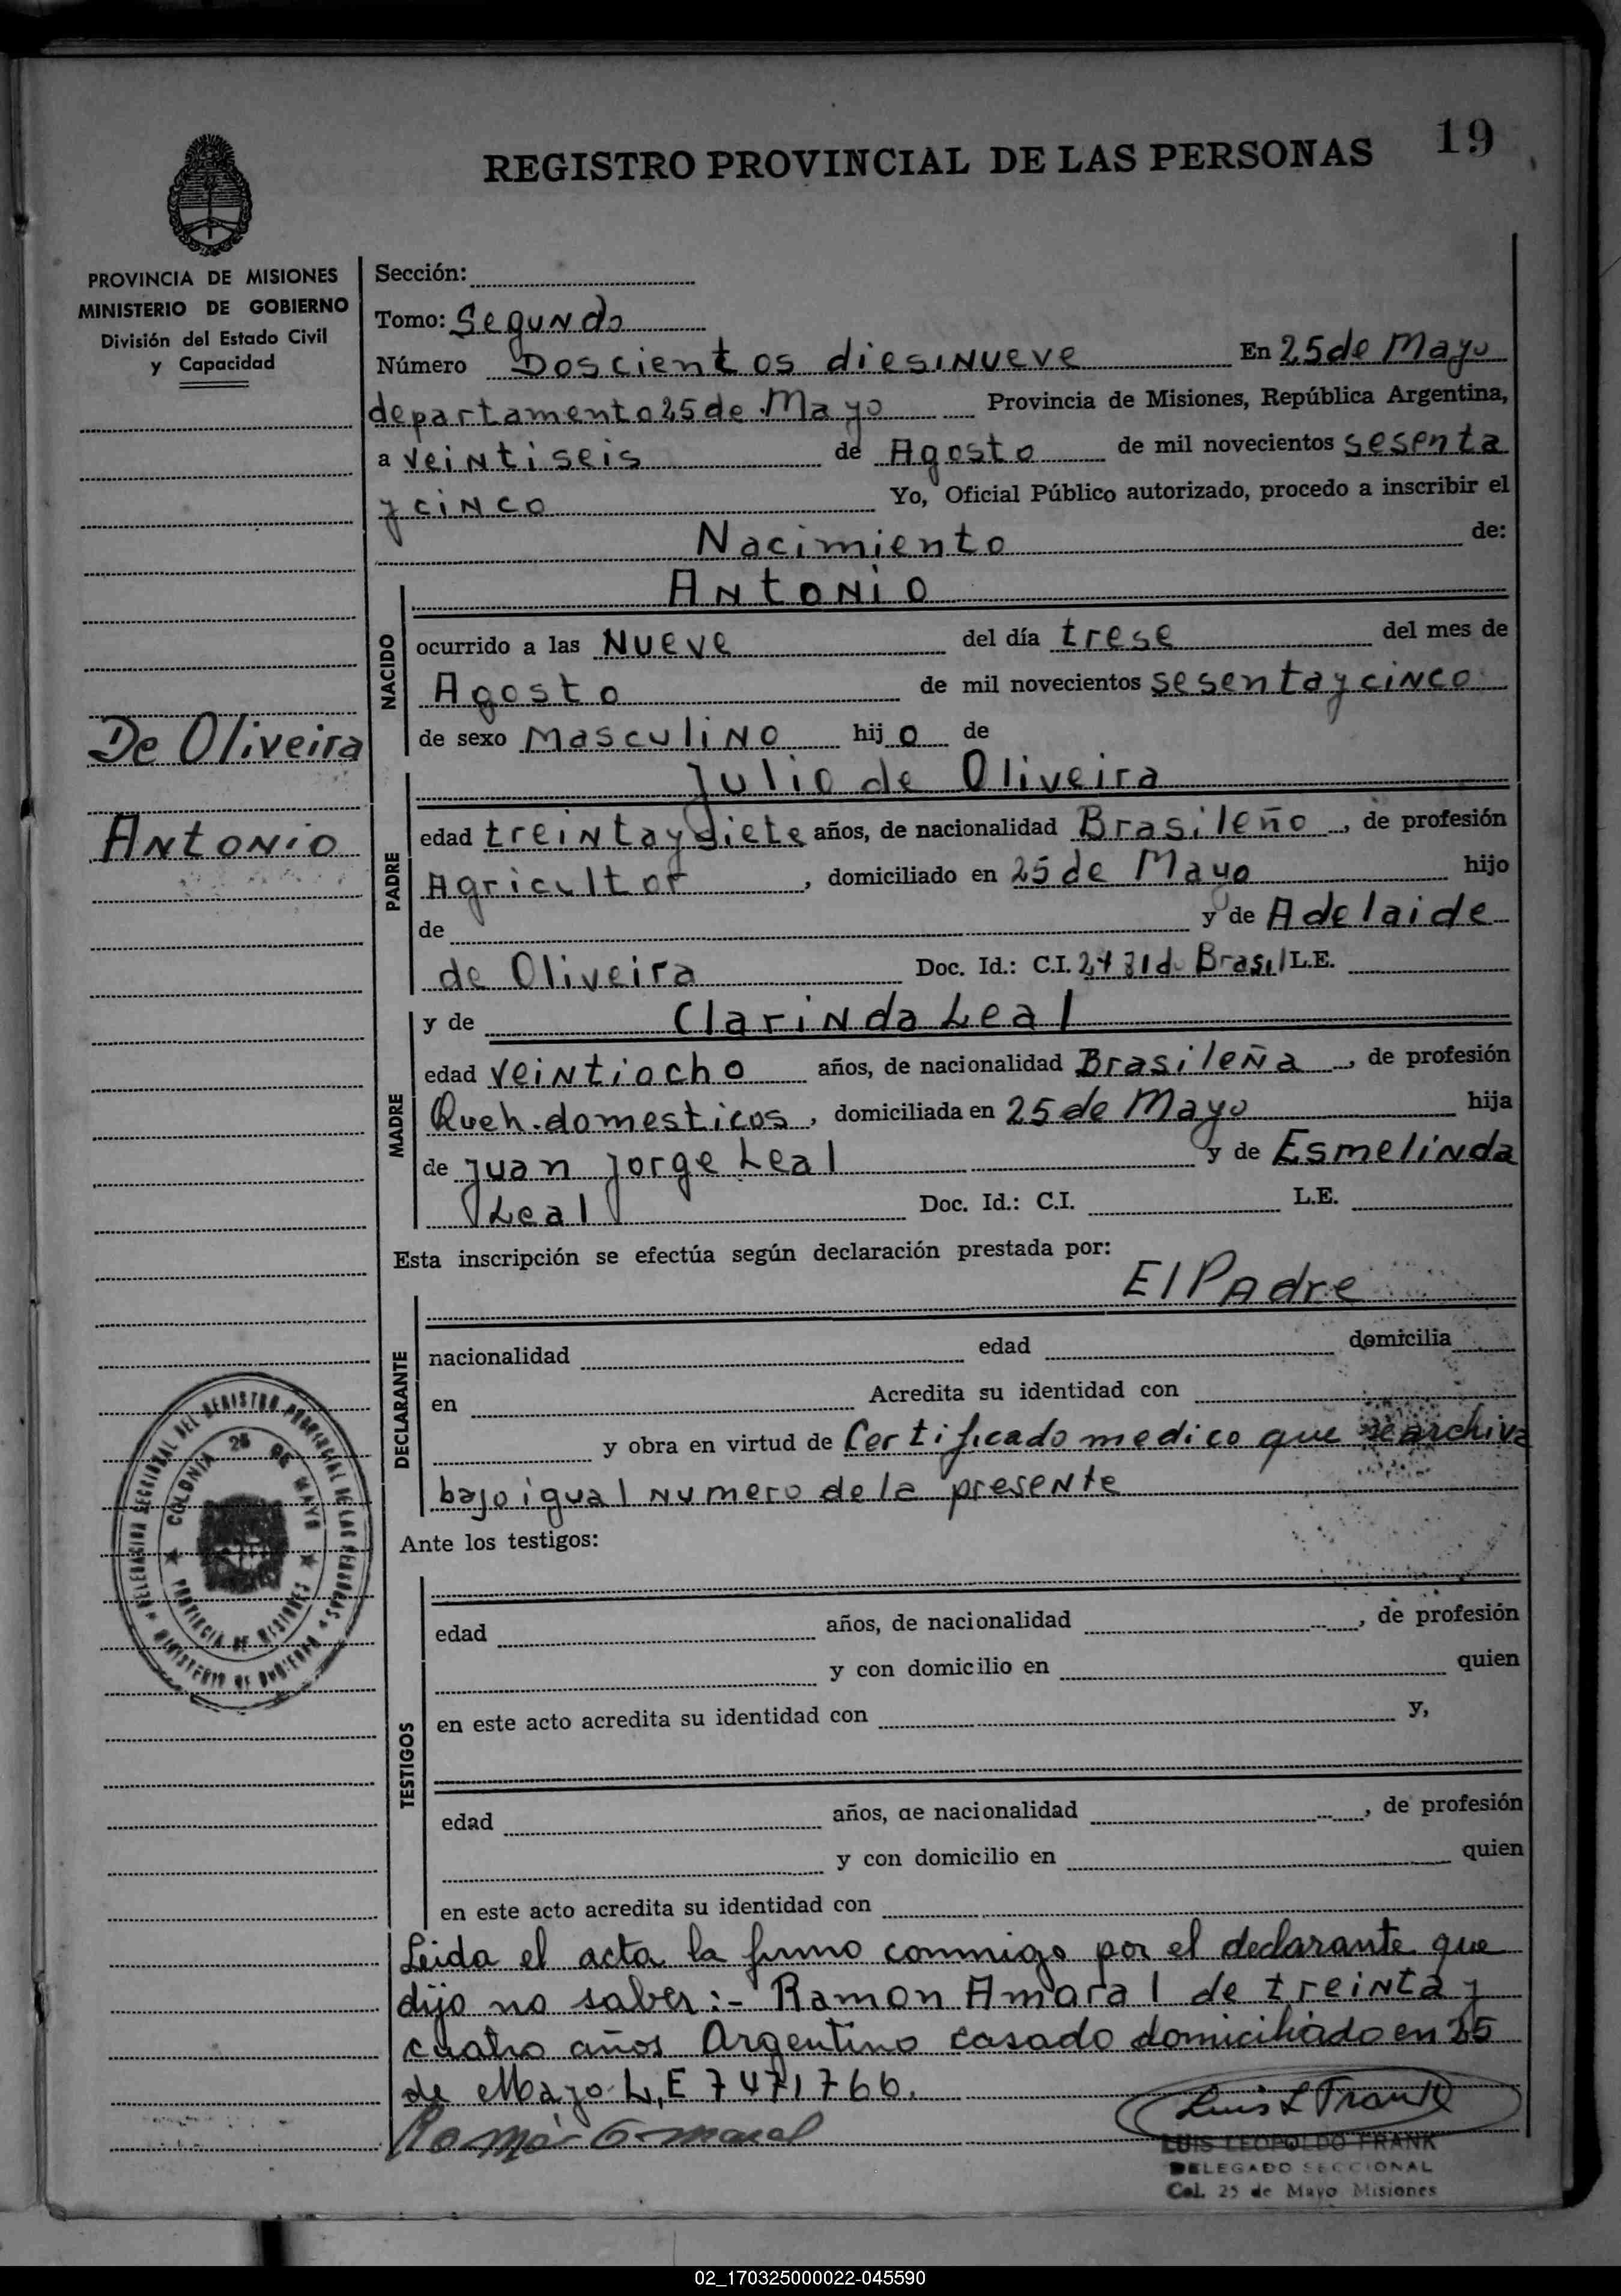 19
REGISTRO PROVINCIAL DE LAS PERSONAS
PROVINCIA DE MISIONES
MINISTERIO DE GOBIERNO
División del Estado Civil
y Capacidad
De Oliveira
Antonio
Sección:
Tomo: Segundo
Número Doscientos diesinueve En 25 de Mayo
departamento 25 de Mayo Provincia de Misiones, República Argentina,
a veintiseis de Agosto de mil novecientos sesenta
y cinco Yo, Oficial Público autorizado, procedo a inscribir el
Nacimiento de:
NACIDO
Antonio
ocurrido a las Nueve del día trese del mes de
Agosto de mil novecientos sesenta y cinco
de sexo Masculino hijo de
PADRE
Julio de Oliveira
edad treinta y siete años, de nacionalidad Brasileño, de profesión
Agricultor, domiciliado en 25 de Mayo hijo
de y de Adelaide
de Oliveira Doc. Id.: C.I. Brasil L.E.
MADRE
y de Clarinda Leal
edad veintiocho años, de nacionalidad Brasileña, de profesión
Queh. domesticos, domiciliada en 25 de Mayo hija
de Juan Jorge Leal y de Esmelinda
Leal Doc. Id.: C.I. L.E.
Esta inscripción se efectúa según declaración prestada por:
DECLARANTE
El Padre
nacionalidad edad domicilia
en Acredita su identidad con
y obra en virtud de Certificado medico que se archiva
bajo igual numero de la presente
Ante los testigos:
TESTIGOS
edad años, de nacionalidad , de profesión
y con domicilio en quien
en este acto acredita su identidad con y,
edad años, de nacionalidad , de profesión
y con domicilio en quien
en este acto acredita su identidad con
Leida el acta la firmo conmigo por el declarante que
dijo no saber:- Ramon Amaral de treinta y
cuatro años Argentino casado domiciliado en 25
de Mayo L.E 7471766.
Luis L Frank
LUIS LEOPOLDO FRANK
DELEGADO SECCIONAL
Col. 25 de Mayo Misiones
DELEGACION SECCIONAL DEL REGISTRO PROVINCIAL DE LAS PERSONAS
MINISTERIO DE GOBIERNO
COLONIA 25 DE MAYO
PROVINCIA DE MISIONES
02_170325000022-045590